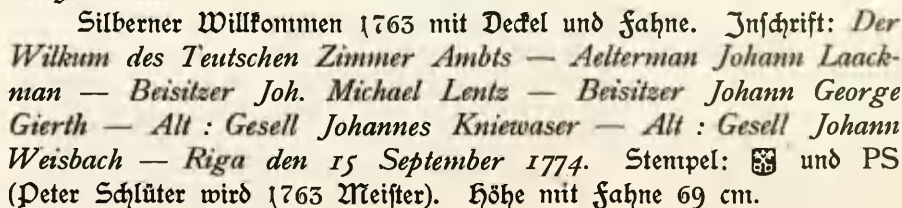 Silberner Willkommen 1763 mit Deckel und Fahne. Inschrift: Der
Wilkum des Teutschen Zimmer Ambts — Aelterman Johann Laack-
man — Beisitzer Joh. Michael Lentz — Beisitzer Johann George
Gierth — Alt : Gesell Johannes Kniewaser — Alt : Gesell Johann
Weisbach — Riga den 15 September 1774. Stempel: und PS
(Peter Schlüter wird 1763 Meister). Höhe mit Fahne 69 cm.